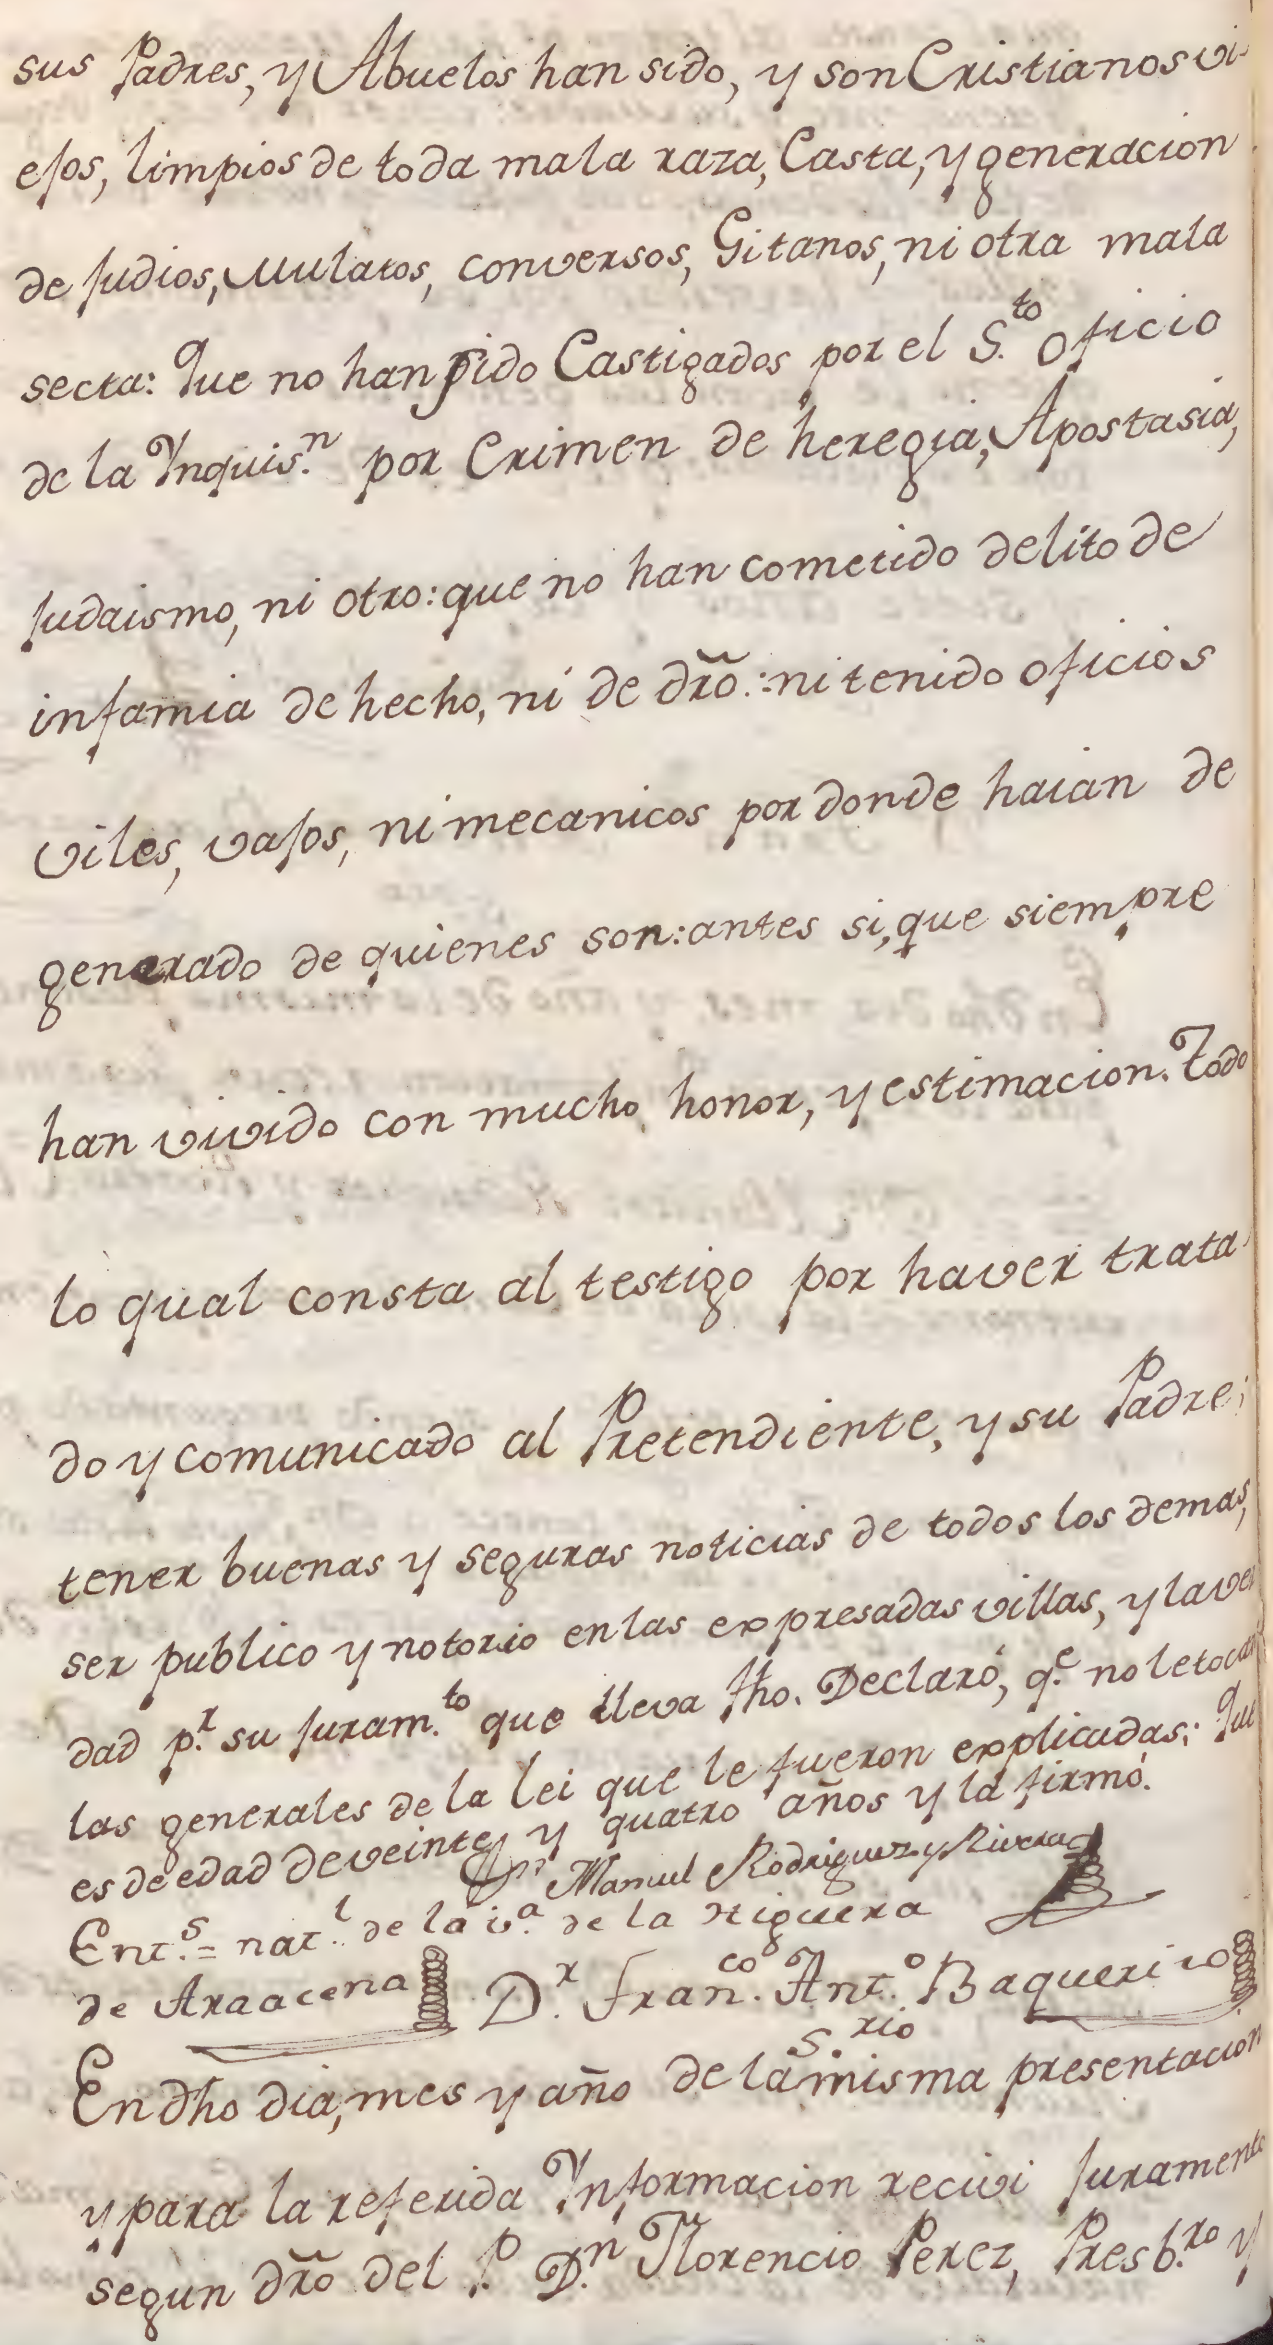 sus Padres, y Abuelos han sido, y son Cristianos vi-
ejos, limpios de toda mala raza, Casta, y generacion
de Judios, Mulatos, conversos, Gitanos, ni otra mala
secta: Que no han sido Castigados por el S.to Oficio
de la Ynquis.n por Crimen de heregia, Apostasia,
Judaismo, ni otro: que no han cometido delito de
infamia de hecho, ni de dr̃o.: ni tenido oficios
viles, vajos, ni mecanicos por donde haian de
generado de quienes son: antes si, que siempre
han vivido con mucho honor, y estimacion. Todo
lo qual consta al testigo por haver trata-
do y comunicado al Pretendiente, y su Padre;
tener buenas y seguras noticias de todos los demas,
ser publico y notorio en las expresadas villas, y la ver
dad p.r su juram.to que lleva fho. Declaró, q.e no le tocan
las generales de la lei que le fueron explicadas: Que
es de edad de veinte y quatro años y la firmó.
Manuel Rodriguez y Rivera
Ent.s = nat.l de la v.a de la Higuera
de Araacena D.r Fran.co Ant.o Baquerizo
S.rio
En dho dia, mes y año de la misma presentacion
y para la referida Ynformacion recivi Juramento
segun dr̃o del P. D.n Florencio Perez, Presb.ro y